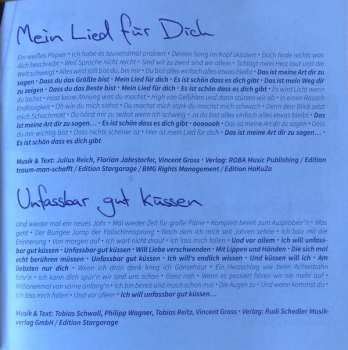 Mein Lied für Dich
Ein weißes Papier • Ich habe es tausendmal probiert • Deinen Song im Kopf skizziert • Doch finde nichts was
dich beschreibt • Weil Sprache nicht reicht • Sind wir zu zweit sind wir allein • Schlägt mein Herz laut und die
Welt schweigt • Alles wird still bist du bei mir • Du bist alles einfach alles etwas bleibt • Das ist meine Art dir zu
sagen • Dass du das Größte bist • Mein Lied für dich • Es ist schön dass es dich gibt • Das ist mein Weg dir
zu zeigen • Dass du das Beste bist • Mein Lied für dich • Es ist schön dass es dich gibt • Es wird Licht wenn
du lachst • hast keine Ahnung was du machst • High von Gefühlen und dann stürzen wir ab • in einen Rausch
• Du machst mich stark du machst mich schwach • Denn dein Blick setzt
mich Schachmatt • Du hörst mir zu selbst wenn ich schweig • Du bist alles einfach alles etwas bleibt • Das
ist meine Art dir zu sagen... • Es ist schön dass es dich gibt • ooooooh • Das ist meine Art dir zu sagen • Dass
du mir wichtig bist • Dass nichts schöner ist • Hier ist mein Lied für dich • Das ist meine Art dir zu sagen... •
Es ist schön dass es dich gibt
Musik & Text: Julius Reich, Florian Jahrstorfer, Vincent Gross • Verlag: ROBA Music Publishing / Edition
traum-man-schafft / Edition Stargarage / BMG Rights Management / Edition HaKuZa
Unfassbar gut küssen
Und wieder mal ein neues Jahr • Mal wieder Zeit für große Pläne • Komplett bereit zum Ausprobier'n • Was
geht • Der Bungee Jump der Fallschirmsprung • Nach dem ich mich seit Jahren sehne • Ich lass mir die
Erinnerung • Von morgen auf • Ich wart nicht drauf • Ich lass mich fallen • Und vor allem • ich will unfass-
bar gut küssen • Unfassbar gut küssen • Will Liebe verschwenden • Mit Lippen und Händen • Die sich mal
echt berühren müssen • Unfassbar gut küssen • Ich will's endlich wissen • Und küssen will ich • Am
liebsten nur dich • Wenn ich dran denk krieg ich Gänsehaut • Ein Herzschlag wie beim Achterbahn
fahr'n • Ich kann dich spür'n wir sind uns schon • Ganz nah • Wenn es passiert hören wir nie mehr auf •
Millionenmal von vorne anfang'n • Ich bin bereit und mach schon mal • Die Augen zu • Und wann kommst du
• Ich lass mich fallen • Und vor allem • Ich will unfassbar gut küssen...
Musik & Text: Tobias Schwall, Philipp Wagner, Tobias Reitz, Vincent Gross • Verlag: Rudi Schedler Musik-
verlag GmbH / Edition Stargarage